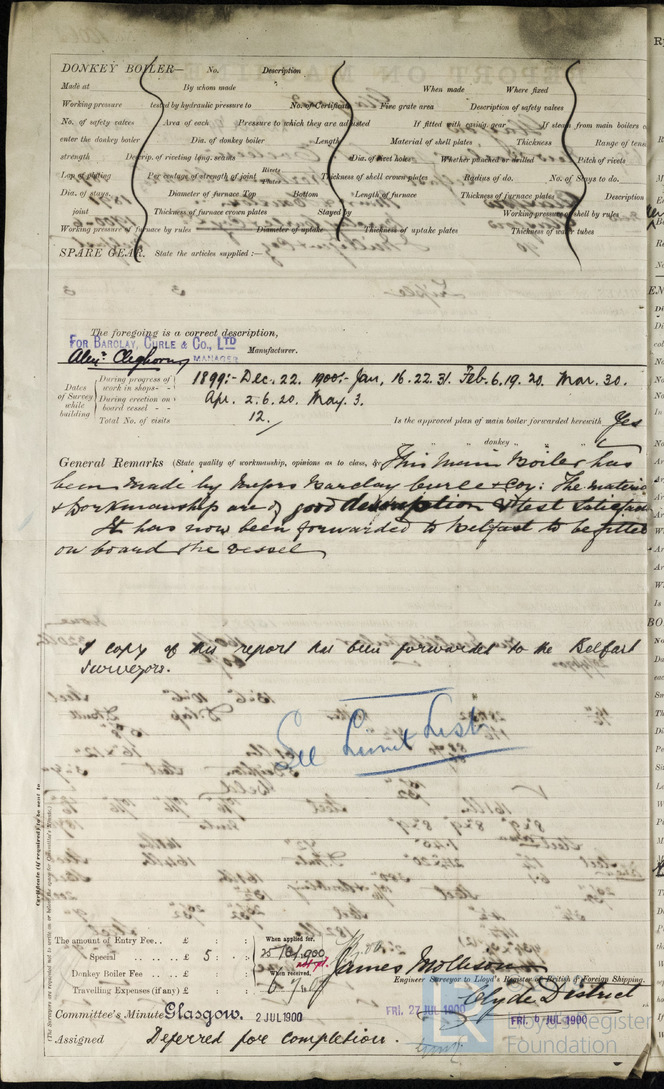 DONKEY BOILER— No. Description
Made at By whom made When made Where fixed
Working pressure tested by hydraulic pressure to No. of Certificate Fire grate area Description of safety valves
No. of safety valves Area of each Pressure to which they are adjusted If fitted with easing gear If steam from main boilers c
enter the donkey boiler Dia. of donkey boiler Length Material of shell plates Thickness Range of tens
strength Descrip. of riveting long. seams Dia. of rivet holes Whether punched or drilled Pitch of rivets
Lap of plating Per centage of strength of joint Rivets Plates Thickness of shell crown plates Radius of do. No. of Stays to do.
Dia. of stays. Diameter of furnace Top Bottom Length of furnace Thickness of furnace plates Description
joint Thickness of furnace crown plates Stayed by Working pressure of shell by rules
Working pressure of furnace by rules Diameter of uptake Thickness of uptake plates Thickness of water tubes
SPARE GEAR. State the articles supplied:—
The foregoing is a correct description,
FOR BARCLAY, CURLE & CO., LTD
Alexr. Cleghorn MANAGER Manufacturer.
Dates of Survey while building
During progress of work in shops - - 1899:- Dec. 22. 1900:- Jan, 16. 22. 31. Feb. 6. 19. 20. Mar. 30.
During erection on board vessel - - Apr. 2. 6. 20. May. 3.
Total No. of visits 12. Is the approved plan of main boiler forwarded herewith Yes
" " " donkey " " "
General Remarks (State quality of workmanship, opinions as to class, &c. This Main Boiler has
been made by Messrs Barclay Curle & Coy: The materia
& workmanship are of good description & test satisfac
It has now been forwarded to Belfast to be fitted
on board the vessel
A copy of this report has been forwarded to the Belfast
Surveyors.
Certificate (if required) to be sent to
The amount of Entry Fee . . £ : : When applied for,
Special . . . . . £ 5 : :
Donkey Boiler Fee . . . £ : : When received,
Travelling Expenses (if any) £ : :
James Mollison
Engineer Surveyor to Lloyd's Register of British & Foreign Shipping.
Clyde District
Committee's Minute Glasgow. 2 JUL 1900 FRI. 27 JUL 1900 FRI. 6 JUL 1900
Assigned Deferred for completion.
Lloyd's Register
Foundation